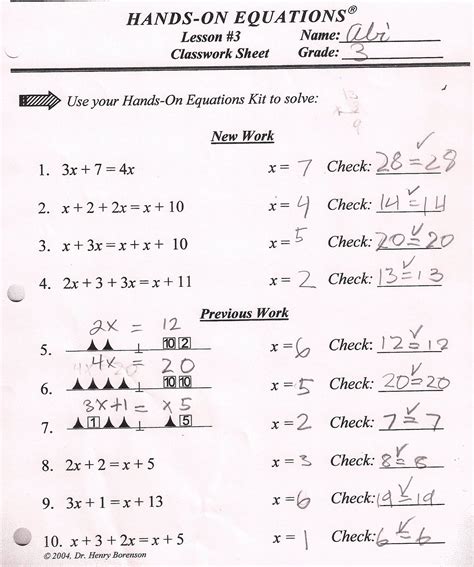 HANDS-ON EQUATIONS®
Lesson #3 Name: Abi
Classwork Sheet Grade: 3
Use your Hands-On Equations Kit to solve:
New Work
1. 3x + 7 = 4x x = 7 Check: 28 = 28
2. x + 2 + 2x = x + 10 x = 4 Check: 14 = 14
3. x + 3x = x + x + 10 x = 5 Check: 20 = 20
4. 2x + 3 + 3x = x + 11 x = 2 Check: 13 = 13
Previous Work
2x = 12
5. 10 2 x = 6 Check: 12 = 12
4x = 20
6. 10 10 x = 5 Check: 20 = 20
3x+1 = x 5
7. 1 5 x = 2 Check: 7 = 7
8. 2x + 2 = x + 5 x = 3 Check: 8 = 8
9. 3x + 1 = x + 13 x = 6 Check: 19 = 19
10. x + 3 + 2x = x + 5 x = 1 Check: 6 = 6
© 2004, Dr. Henry Borenson